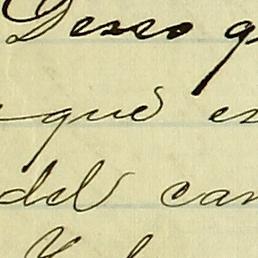 Deseo q
que e
del can